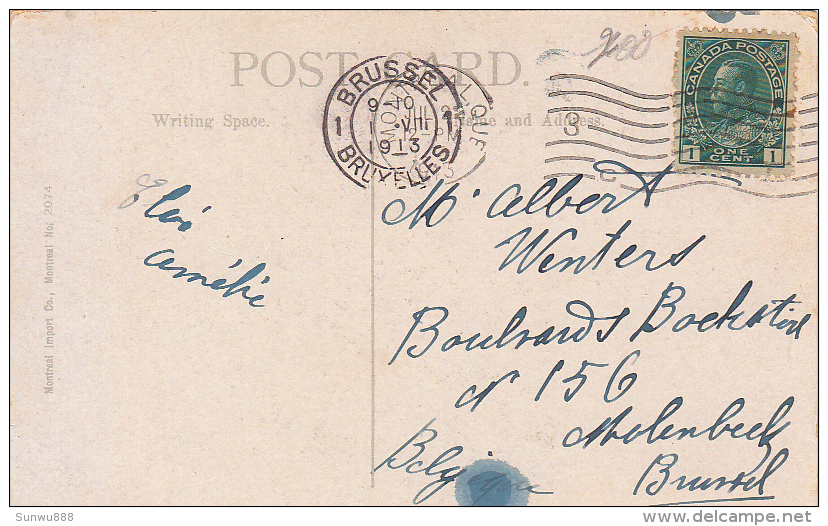 POST CARD.
Writing Space.
Name and Address.
BRUSSEL
9 10
VIII
1 1
1913
BRUXELLES
MONT
AL.QUE
3
C
CANADA POSTAGE
1 ONE CENT 1
900
Eloi
Amélie
Mr Albert
Winters
Boulvards Bockstöel
No 156
Molenbeek
Belgique Brussel
Montreal Import Co., Montreal No: 2074
Sunwu888
www.delcampe.net